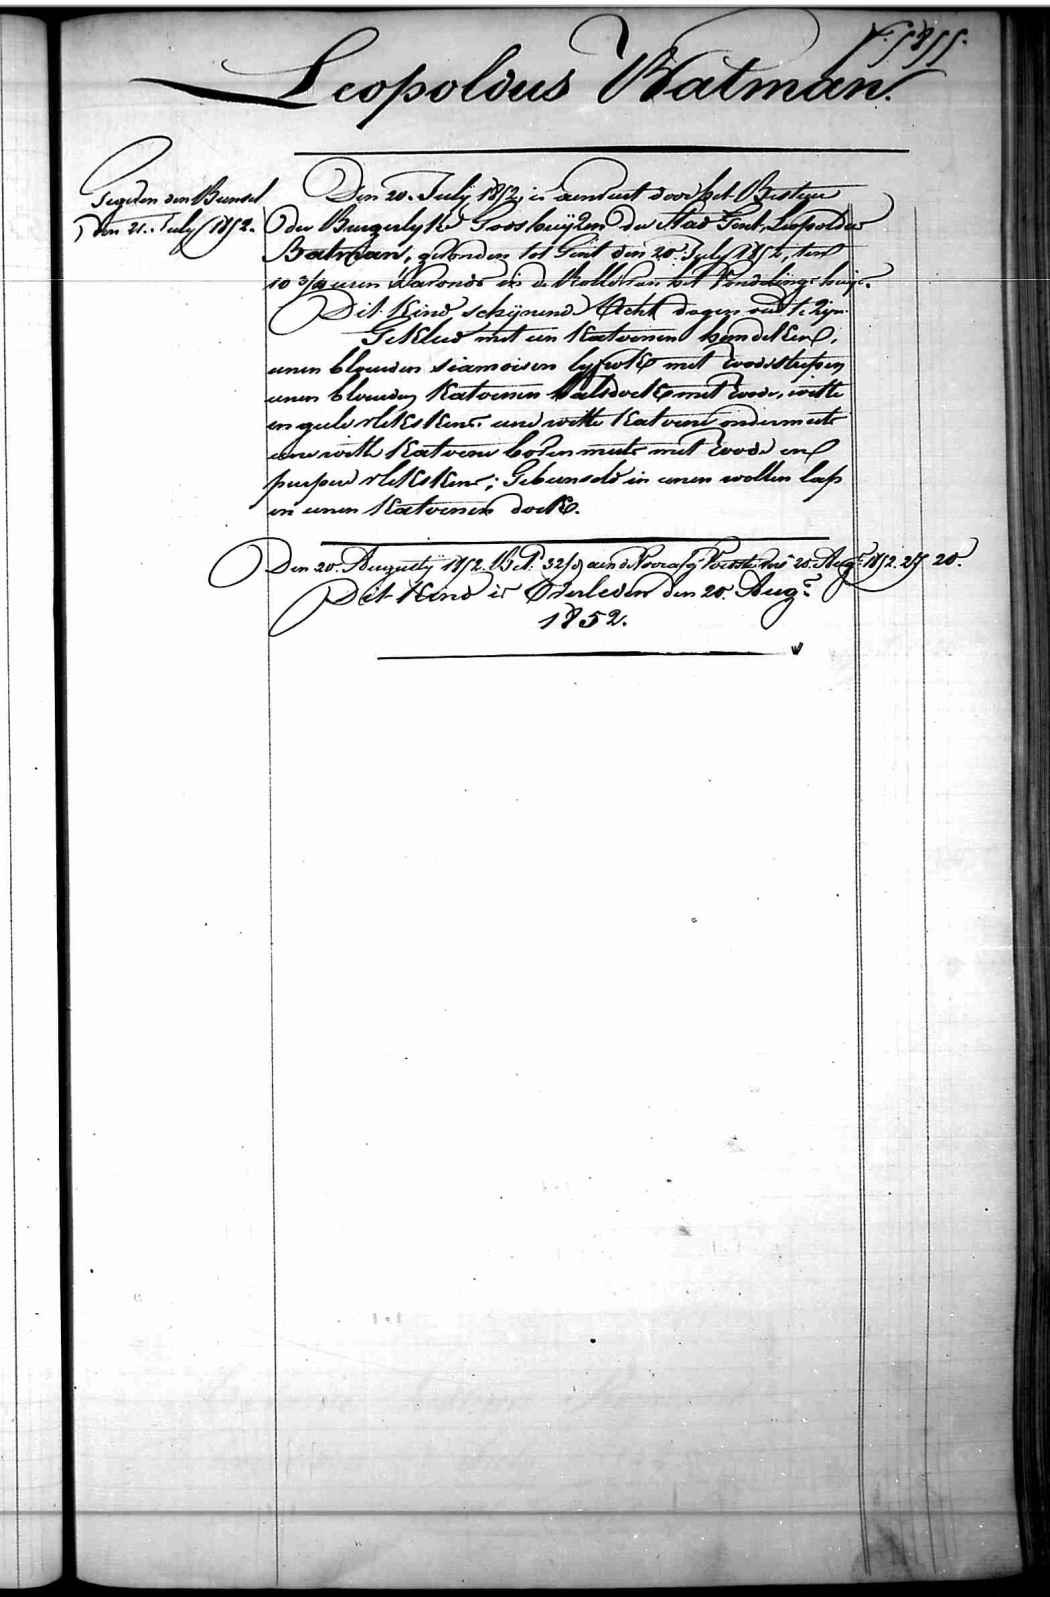 F. 5855.
Leopoldus Batman.
Gegeven den Bunsel
den 21. July 1852.
Den 20. July 1852, is aenveert door het Bestuer
der Burgerlyke Godshuijzen der Stad Gent, Leopoldus
Batman, gevonden tot Gent den 20. July 1852, ten
10 3/4 uren 's avonds in de Rolle van het Vondelingshuijs.
Dit Kind schijnende Acht dagen oud te zijn.
Gekleed met een Katoenen hemdeken,
eenen blauwen siamoisen lyfrok met roode strepen
eenen blauwen Katoenen halsdoek met roode, witte
en geele vlekskens. eene witte Katoene ondermuts
eene witte Katoene bovenmuts met roode en
purpere vlekskens; Gebunseld in eenen wollen lap
en eenen Katoenen doek.
Den 20. Augusty 1852. Bet. 32/ aen de Voedster tot 20. Aug. 1852. 20.
Dit Kind is Overleden den 20. Aug.
1852.